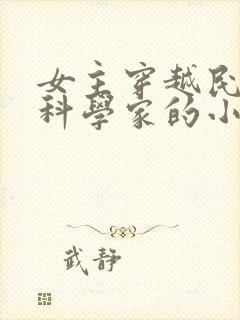 女主穿越民
科學家的小
武靜